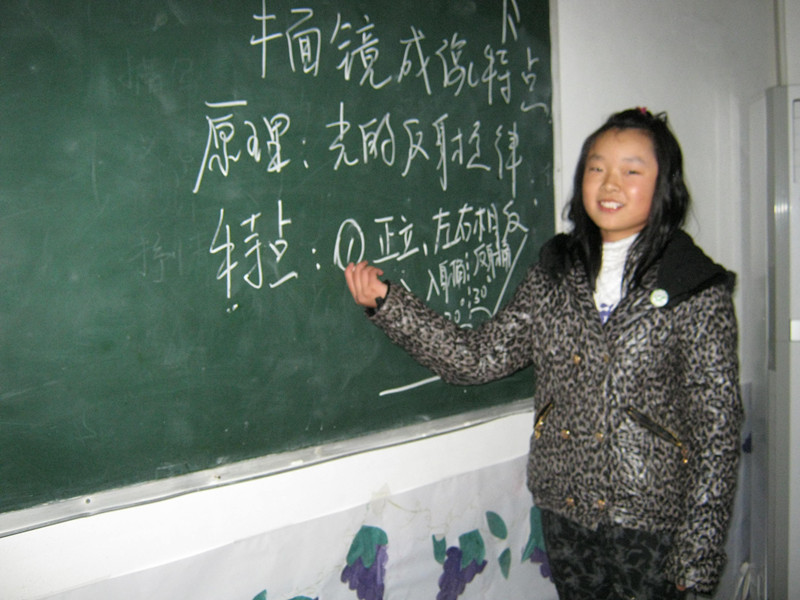 平面镜成像特点
原理：光的反射定律
特点：① 正立、左右相反
入射角：反射角